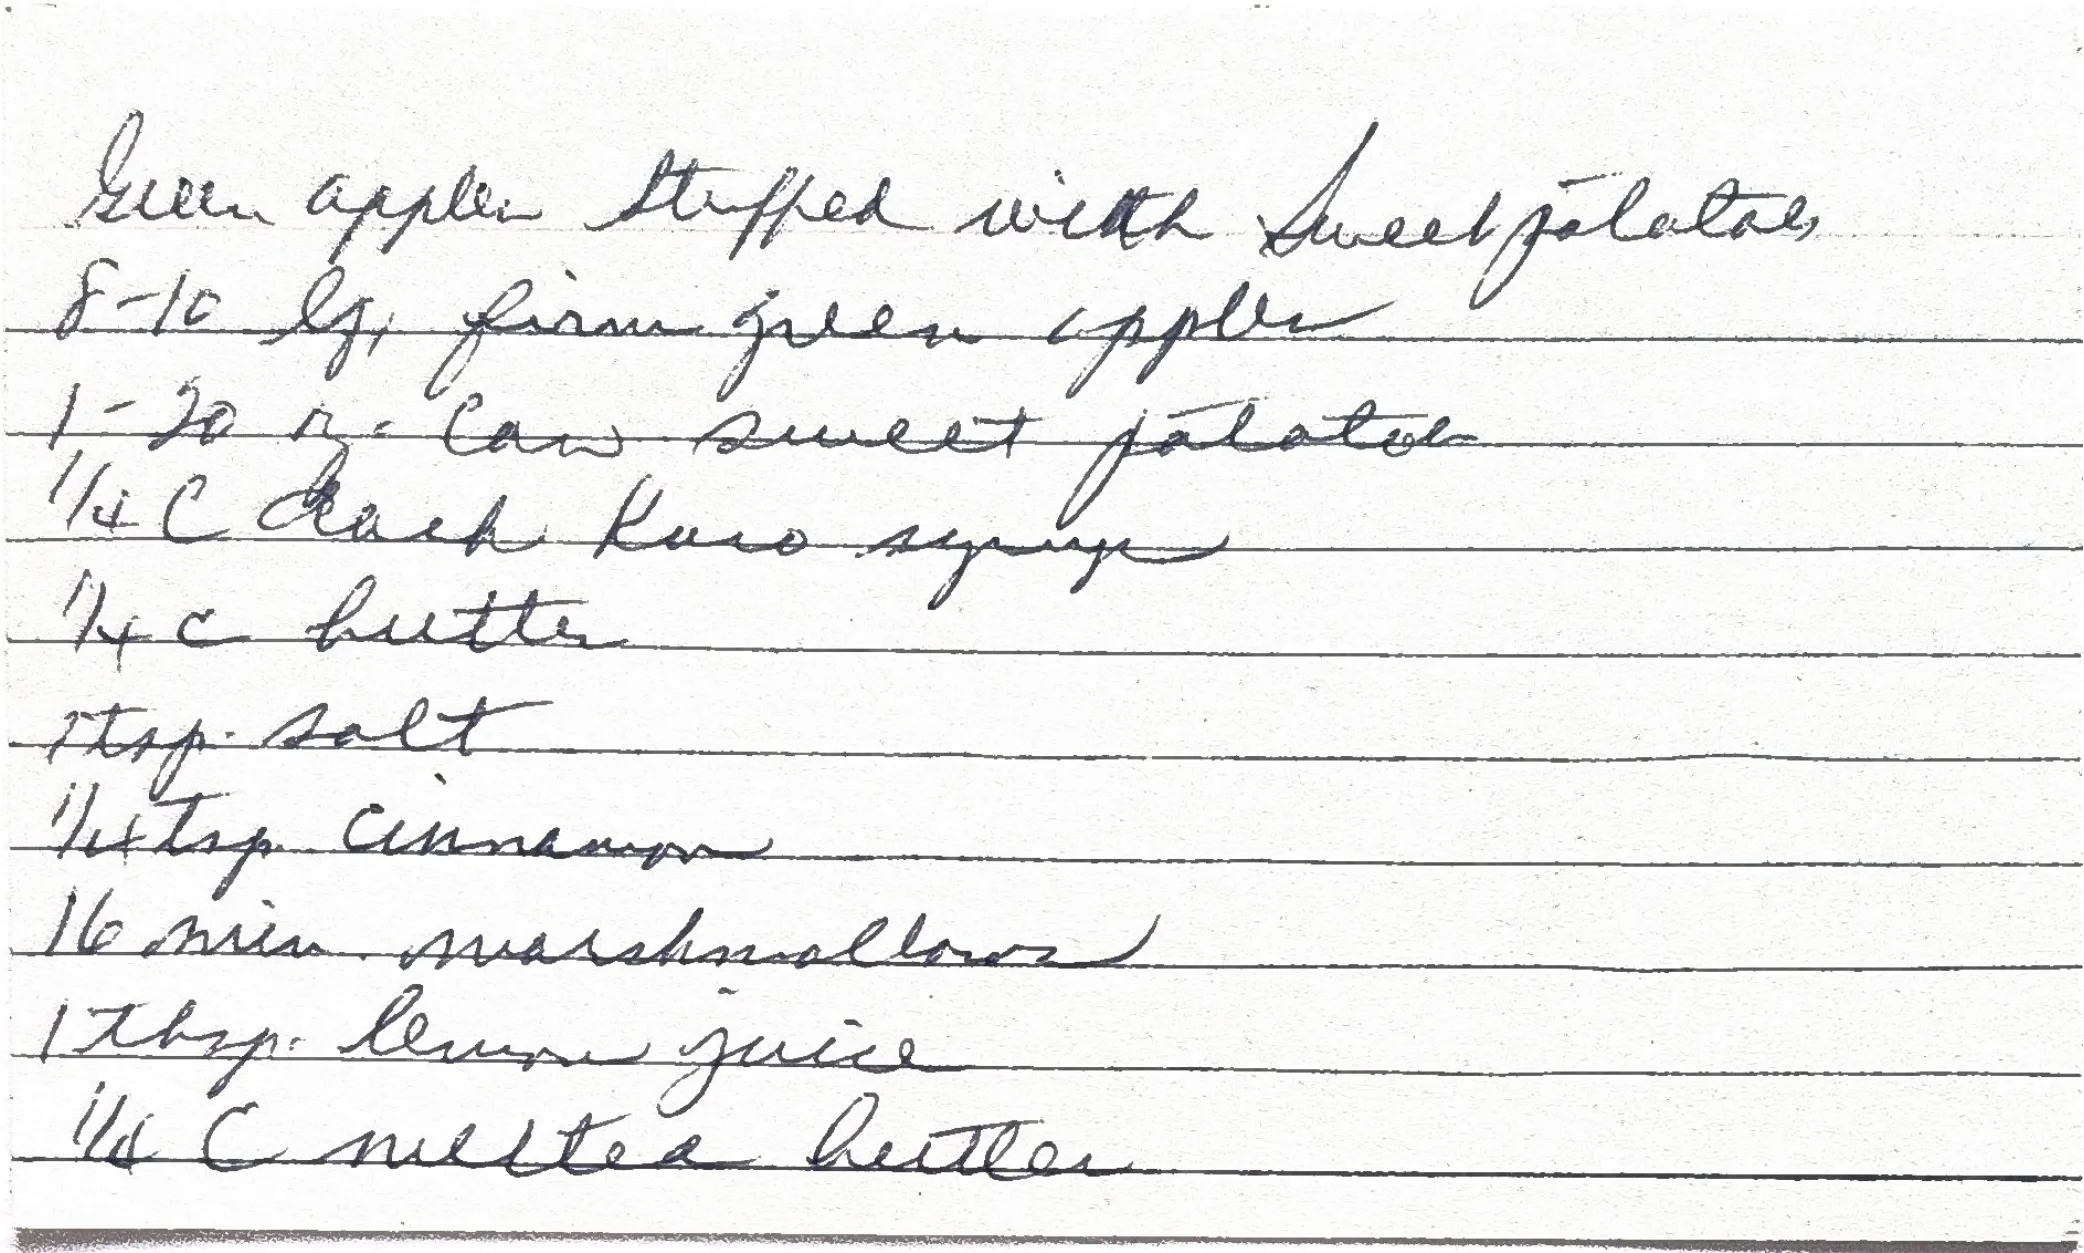 Green apples stuffed with Sweet potatoes
8-10 lg. firm green apples
1-20 oz. can sweet potatoes
1/4 C dark Karo syrup
1/4 c butter
1 tsp. salt
1/4 tsp. cinnamon
16 min. marshmallows
1 tbsp. lemon juice
1/4 C melted butter